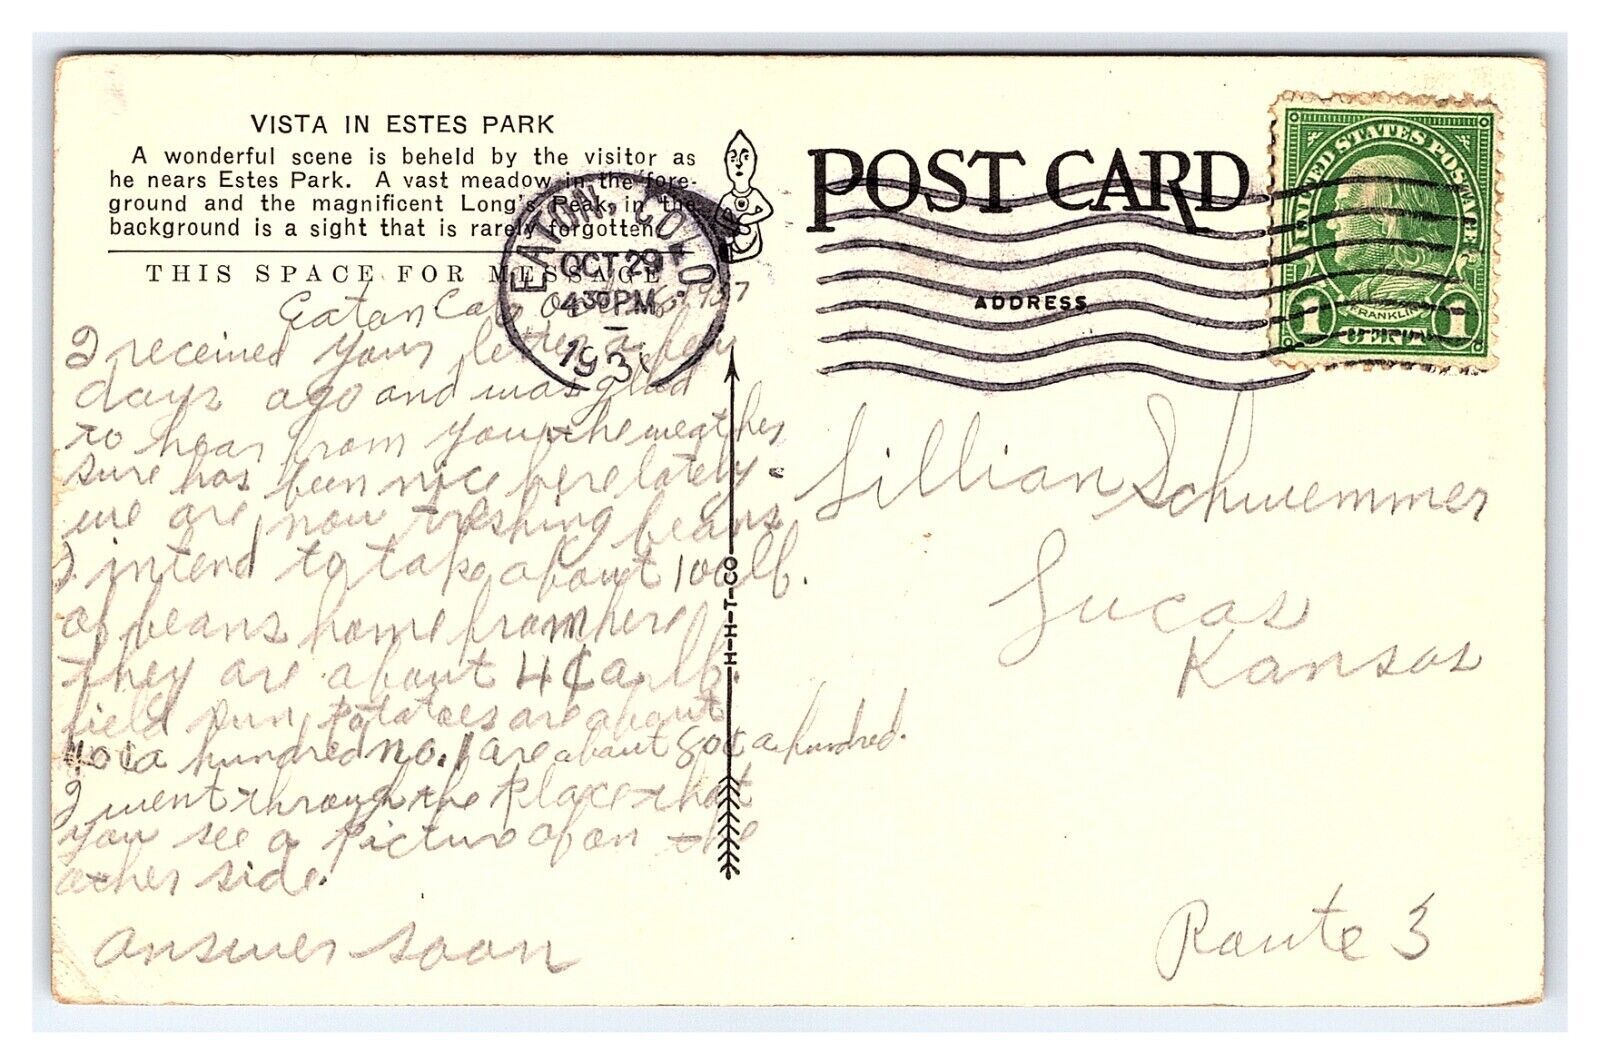 VISTA IN ESTES PARK
A wonderful scene is beheld by the visitor as
he nears Estes Park. A vast meadow in the fore-
ground and the magnificent Long's Peak in the
background is a sight that is rarely forgotten.
THIS SPACE FOR MESSAGE
Eaton Colo
I received your letter a few
days ago and was glad
to hear from you the weather
sure has been nice here lately.
we are now treshing beans
I intend to take about 100 lb.
of beans home from here
they are about 4¢ a lb.
field run potatoes are about
a hundred no. 1 are about 80¢ a hundred.
I went through the place that
you see a picture of on the
other side.
answer soon
EATON, COLO
OCT 29
430 PM
193
H-H-T-CO
POST CARD
ADDRESS
UNITED STATES POSTAGE
FRANKLIN
1 CENT 1
Lillian Schwemmer
Lucas
Kansas
Route 3